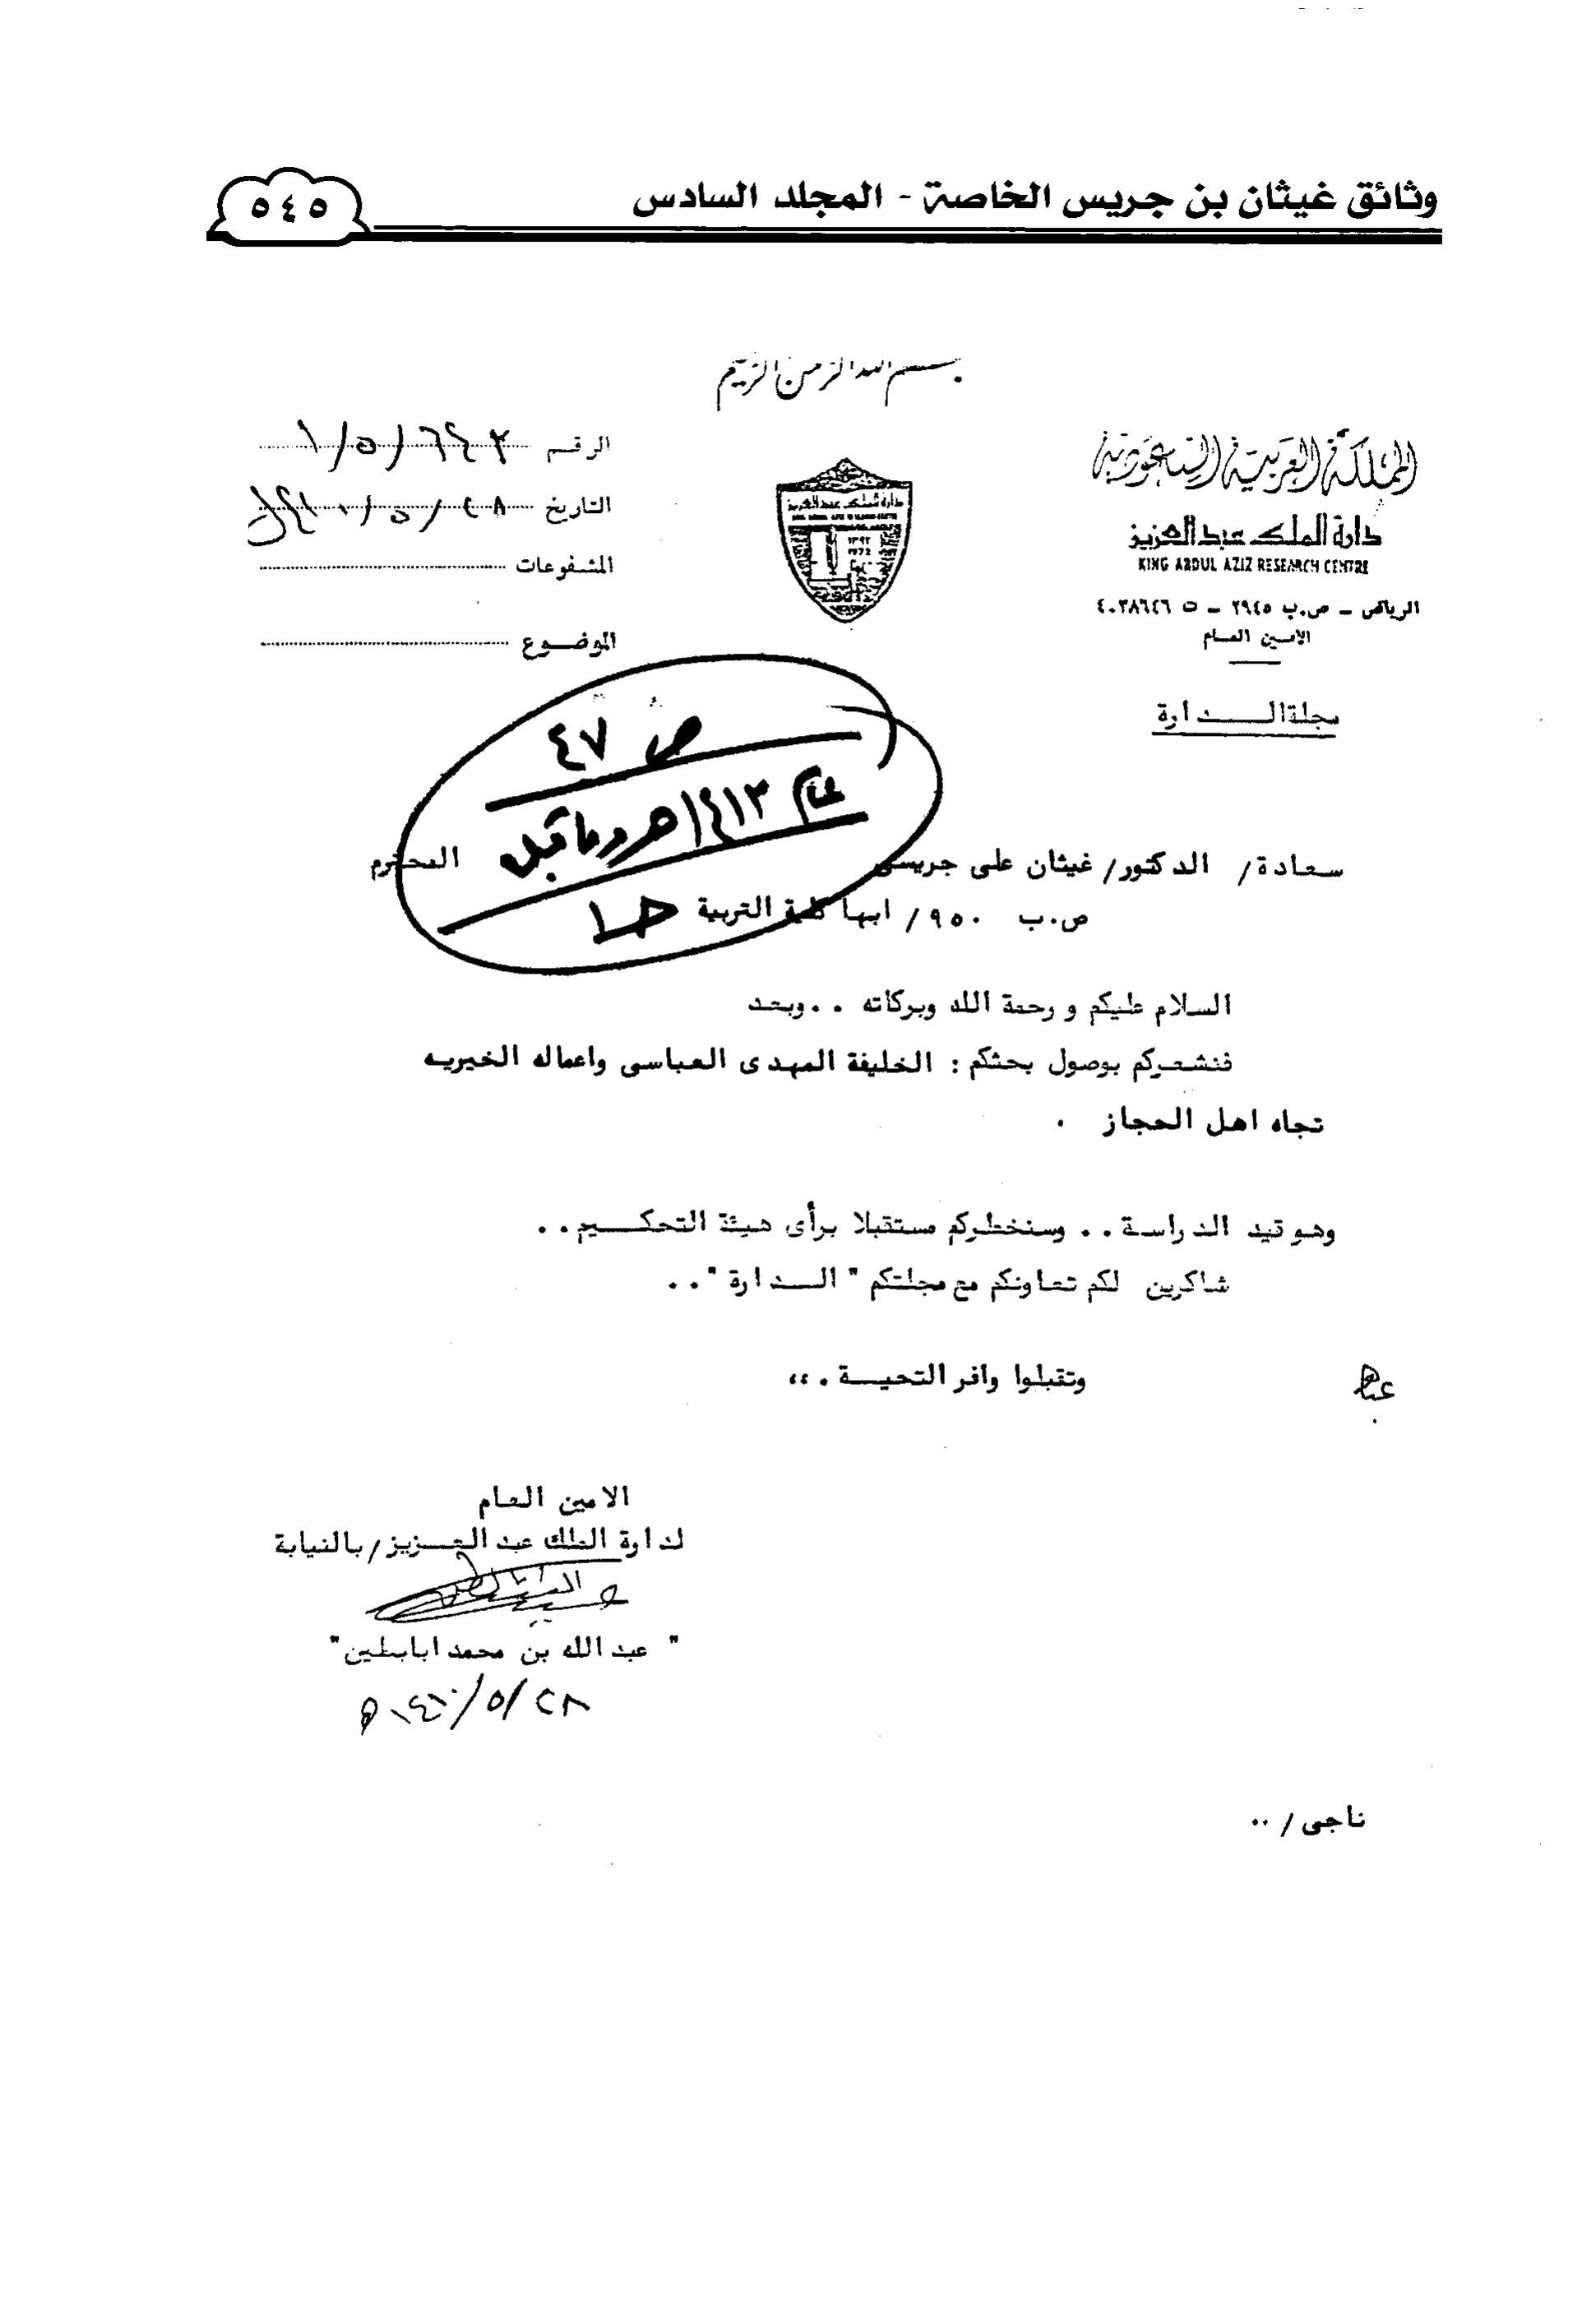 وثائق غيثان بن جريس الخاصة - المجلد السادس
٥٤٥
بسم الله الرحمن الرحيم
المملكة العربية السعودية
دارة الملك عبد العزيز
KING ABDUL AZIZ RESEARCH CENTRE
الرياض - ص.ب ٢٩٤٥ - ت ٤٠٣٨٦٤٦
الامين العام
مجلة الـــدارة
الرقم
التاريخ ٢٨/٥/١٤١٠هـ
المشفوعات
الموضوع
دارة الملك عبد العزيز
١٣٩٢
1972
ص ٤٧
عام ١٤١٣هـ وما قبل
سعادة/ الدكتور/ غيثان على جريسى المحترم
ص.ب ٩٥٠/ ابها كلية التربية
السلام عليكم و رحمة الله وبركاته . . وبعد
فنشعركم بوصول بحثكم : الخليفة المهدى العباسى واعماله الخيريه
تجاه اهل الحجاز .
وهو قيد الدراسة . . وسنخطركم مستقبلا برأى هيئة التحكـــيم . .
شاكرين لكم تعاونكم مع مجلتكم " الـــدارة " . .
وتقبلوا وافر التحيـــة . ،،
الامين العام
لدارة الملك عبد العـــزيز/ بالنيابة
" عبد الله بن محمد ابابطين "
٢٨/٥/١٤١٠هـ
ناجى / ..